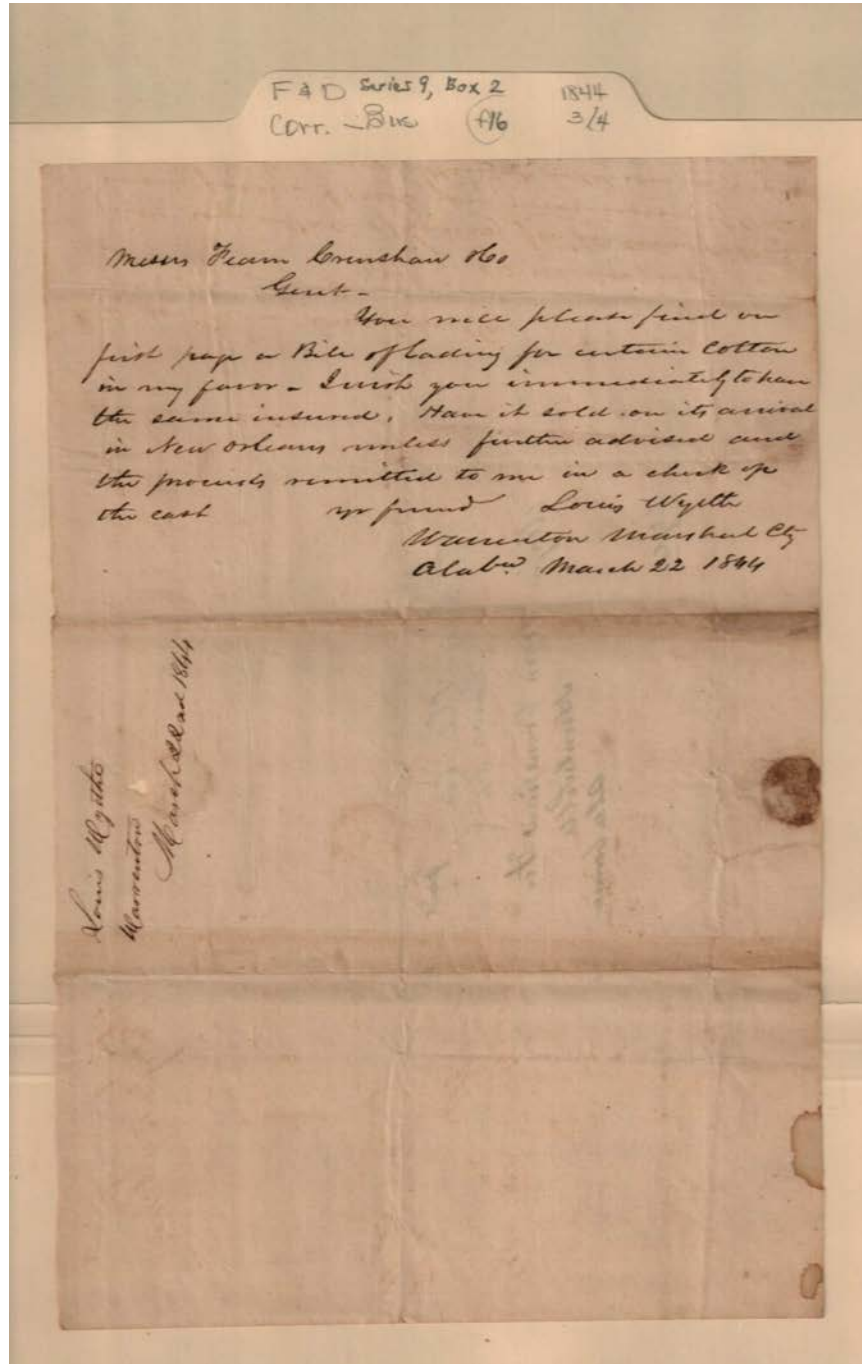 F & D Series 9, Box 2 1844
Corr. - Bus f16 3/4
Messrs Fearn Crenshaw &Co
Gent -
You will please find on
first page a Bill of Lading for certain Cotton
in my favor - I wish you immediately to have
the same insured. Have it sold on its arrival
in New Orleans unless further advised and
the proceeds remitted to me in a check op
the east yr friend Louis Wyeth
Warrenton Marshal Cty
Alabᵃ March 22 1844
Louis Wythe
Warrenton
March 22nd 1844